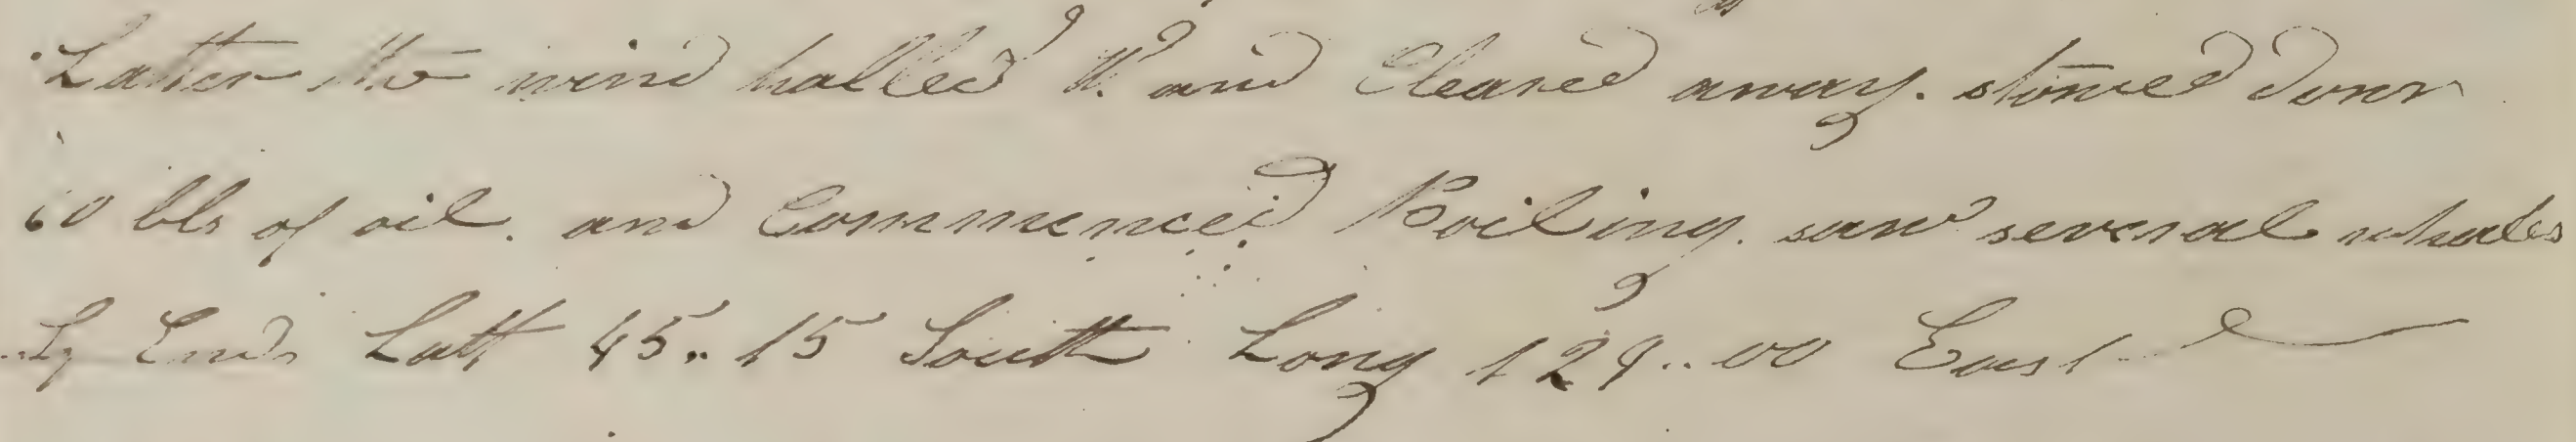 Latter the wind halled W. and Cleared away. stowed down
60 bls of oil. and Commenced Boiling. saw several whales
So Ends Latt 45.. 15 South Long 129..00 East